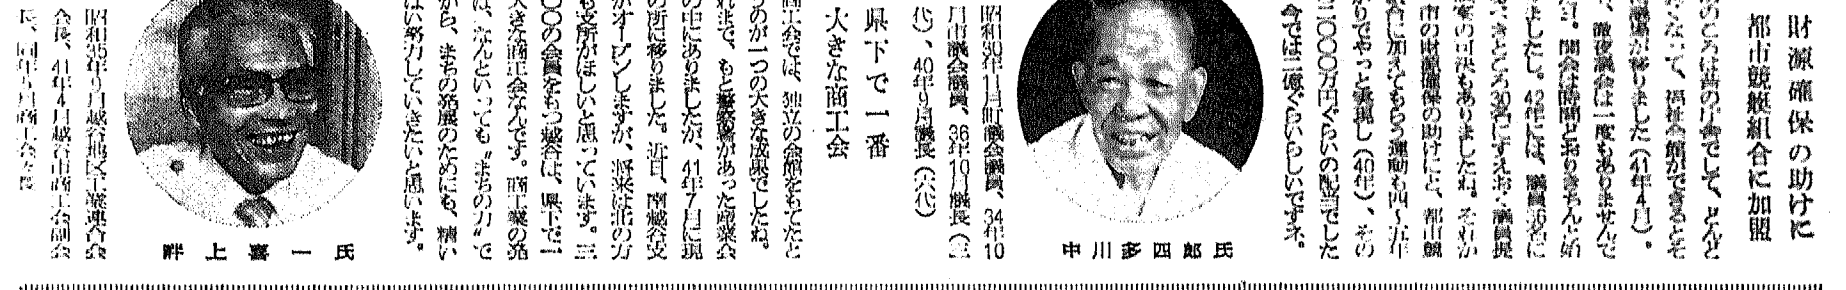 財源確保の助けに
都市競艇組合に加盟
のころは昔の庁舎でして、どんど
なって、福祉会館ができるとそ
議場が移りました(41年4月)。
、徹夜議会は一度もありませんで
。開会は時間どおりきちんと始
ましたし。42年には、議員36名に
べきところ30名にすえおく議員提
案の可決もありましたね。それか
市の財源確保の助けにと、都市競
合に加えてもらう運動も四〜五年
かりでやっと実現し(40年)、その
二〇〇〇万円ぐらいの配当でした
今では二億ぐらいらしいですネ。
中川多四郎氏
昭和30年11月町議会議員、34年10
月市議会議員、36年10月議長(三
代)、40年9月議長(六代)
県下で一番
大きな商工会
商工会では、独立の会館をもてたと
うのが一つの大きな成果でしたね。
れまで、もと警察署があった産業会
の中にありましたが、41年7月に現
の所に移りました。近日、南越谷支
がオープンしますが、将来は北の方
も支所がほしいと思っています。三
〇〇の会員をもつ越谷は、県下で一
大きな商工会なんです。商工業の発
は、なんといっても〝まちの力〟で
から、まちの発展のためにも、精い
はい努力していきたいと思います。
畔上喜一氏
昭和35年5月越谷地区工業連合会
会長、41年4月越谷市商工会副会
長、同年5月商工会会長